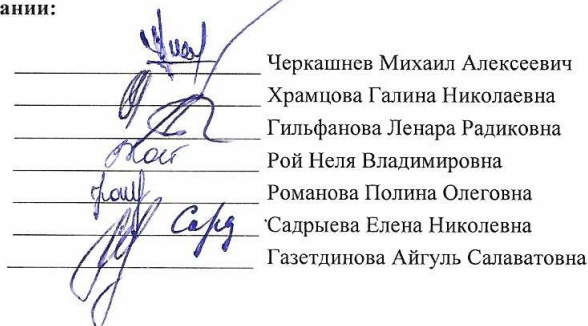 ании:
Черкашнев Михаил Алексеевич
Храмцова Галина Николаевна
Гильфанова Ленара Радиковна
Рой Неля Владимировна
Романова Полина Олеговна
Садрыева Елена Николевна
Газетдинова Айгуль Салаватовна